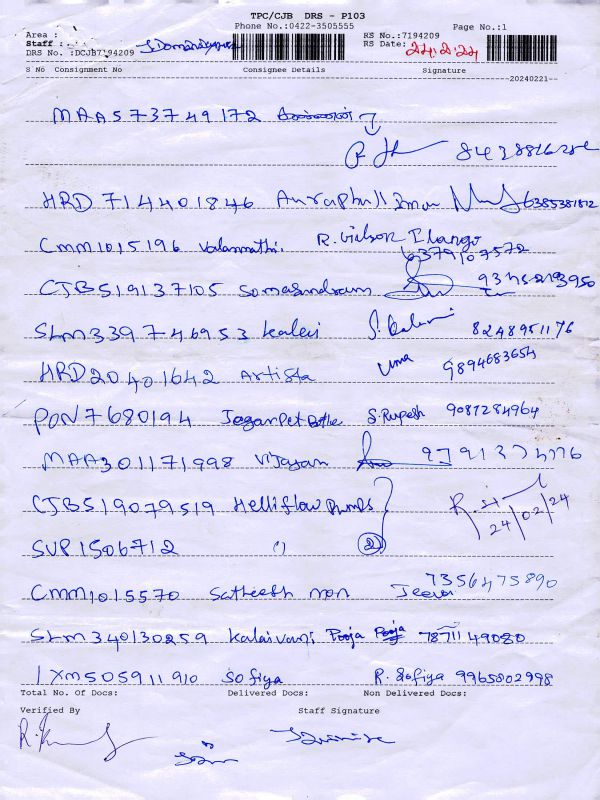 TPC/CJB DRS - P103
Phone No.:0422-3505555 Page No.:1
Area :
Staff :
DRS No :DCJB7194209
RS No.:7194209
RS Date: 24.2.24
S No Consignment No Consignee Details Signature
20240221
MAA573749172
HRD 714401846 6385381812
CMM1015196 Valarmathi. R. Gibson Ilango
6379107572
CJB519137105 Somasundram
SLM339746953 Kalai 8248951176
HRD20401642 Artista Uma 9894683654
PON7680194 Jegan Pet Bottle S.Rupesh 9087284964
MAA301171998 Vijayan
CJB519079519 Helliflow Pumps
24/02/24
SVP1506712 " 2
CMM1015570 Satheesh mon Jeeva 7356475890
SLM340130259 Kalaivani Pooja Pooja 7871149080
IXM505911910 Sofiya R. Sofiya 9965802998
Total No. Of Docs: Delivered Docs: Non Delivered Docs:
Verified By Staff Signature